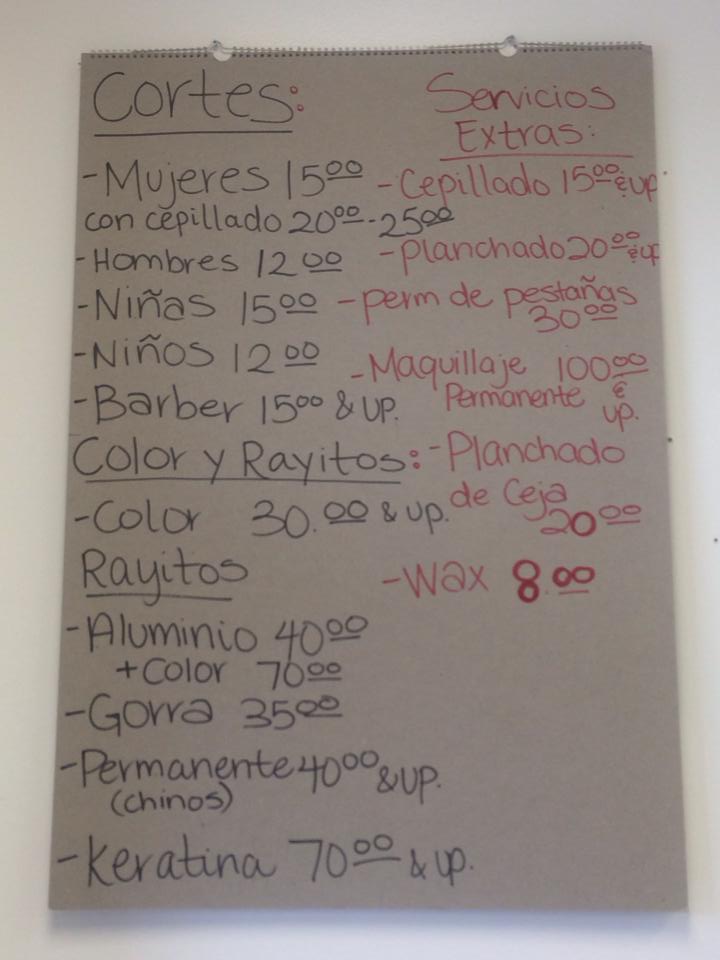 Cortes:
-Mujeres 15.00
con cepillado 20.00-25.00
-Hombres 12.00
-Niñas 15.00
-Niños 12.00
-Barber 15.00 & up.
Color y Rayitos:
-Color 30.00 & up.
Rayitos
-Aluminio 40.00
+Color 70.00
-Gorra 35.00
-Permanente 40.00 & up.
(chinos)
-Keratina 70.00 & up.
Servicios
Extras:
-Cepillado 15.00 & up
-planchado 20.00 & up
-perm de pestañas
30.00
-Maquillaje 100.00
Permanente &
up.
-Planchado
de Ceja
20.00
-Wax 8.00